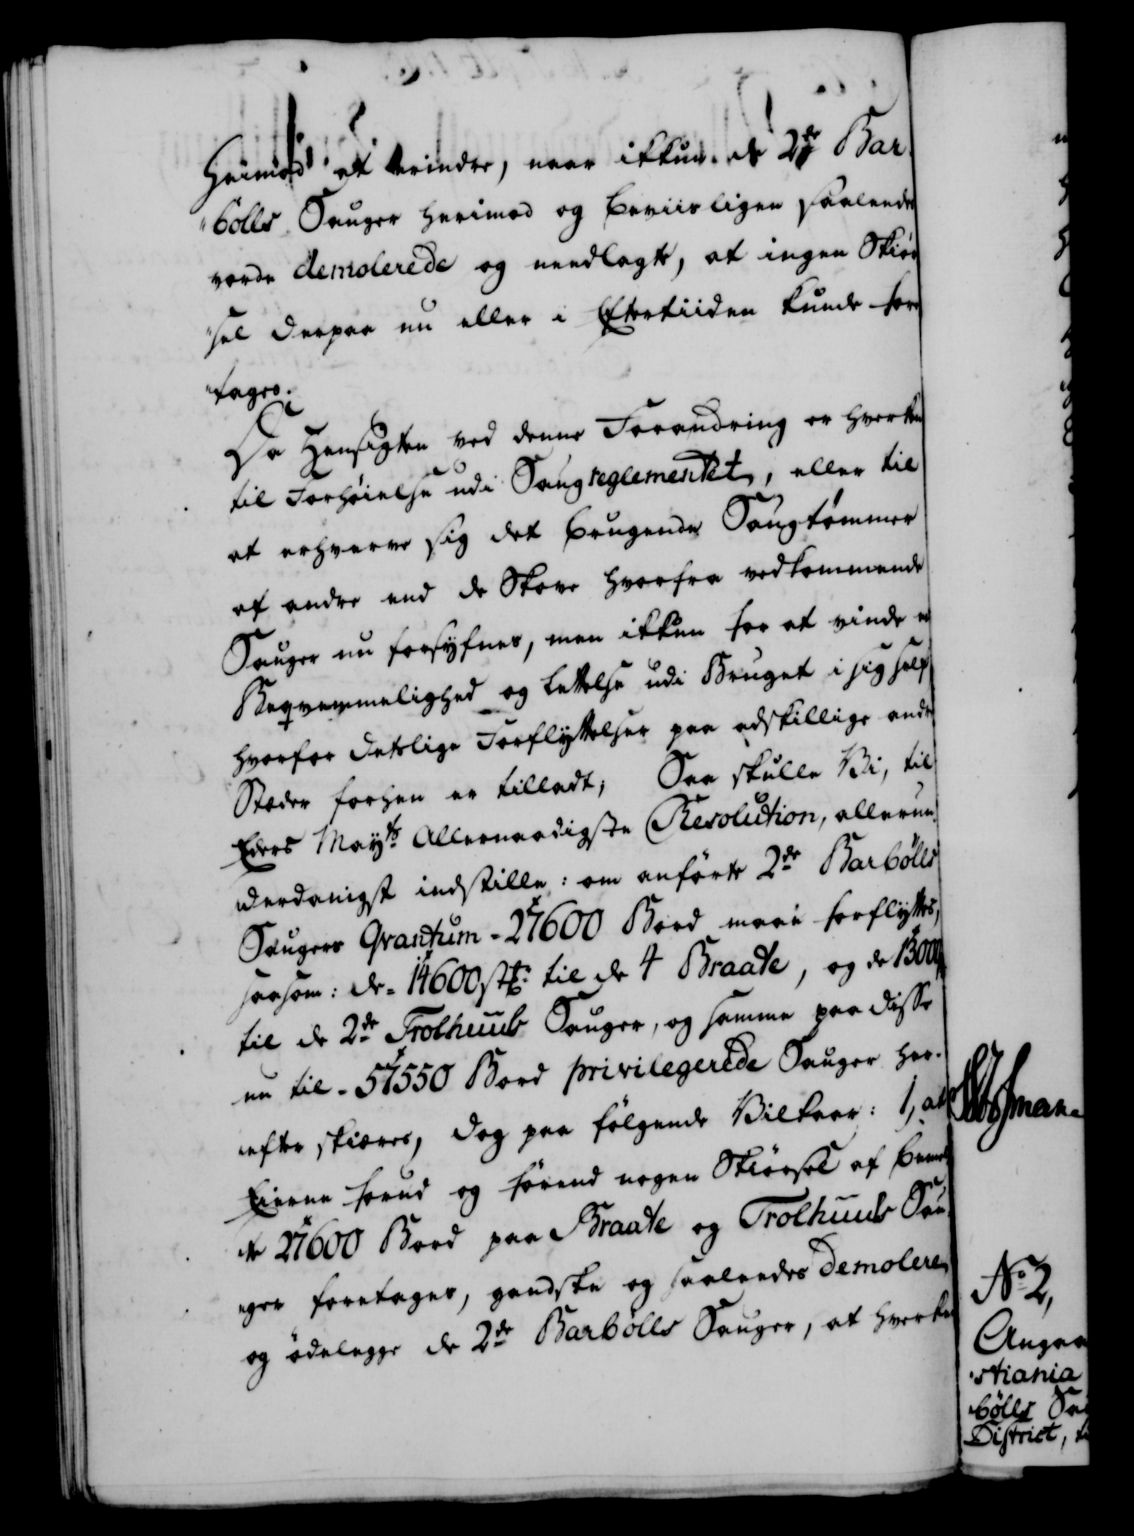 Heimod at erindre, naar ikkun de 2de Bar-
bølls Sauger herimod og beviisligen saaledes
vorde demolerede og needlagte, at ingen Skiør-
sel derpaa nu eller i Eftertiiden kunde fore-
tages.
Da Hensigten ved denne Forandring er hverken
til Forhøielse udi Saugreglementet, eller til
at erhverve sig det brugende Saugtømmer
af andre end de Skove hvorfra vedkommende
Sauger nu forsyfnes, men ikkun for at vinde en
Beqvemmelighed og Lettelse udi Bruget i sig self
hvorfor detslige Forflyttelser paa adskillige andre
Stæder forhen er tilladt; Saa skulle Vi, til
Eders Mayts Allernaadigste Resolution, allerun-
derdanigst indstille: om anførte 2de Barbølls
Saugers Qvantum - 27600 Bord maae forflyttes,
saasom: de - 14600 stk: til de 4 Braate, og de 13000
til de 2de Trolhuuls Sauger, og samme paa disse
nu til - 57550 Bord privilegerede Sauger her-
efter skiæres, dog paa følgende Vilkaar: 1, at
Eierne forud og førend nogen Skiørsel af bemel-
te 27600 Bord paa Braate og Trolhuuls Sau-
ger foretages, gandske og saaledes demolere
og ødelegge de 2de Barbølls Sauger, at hverken
No 2,
Angaa
stiania
bølls Sa
District,